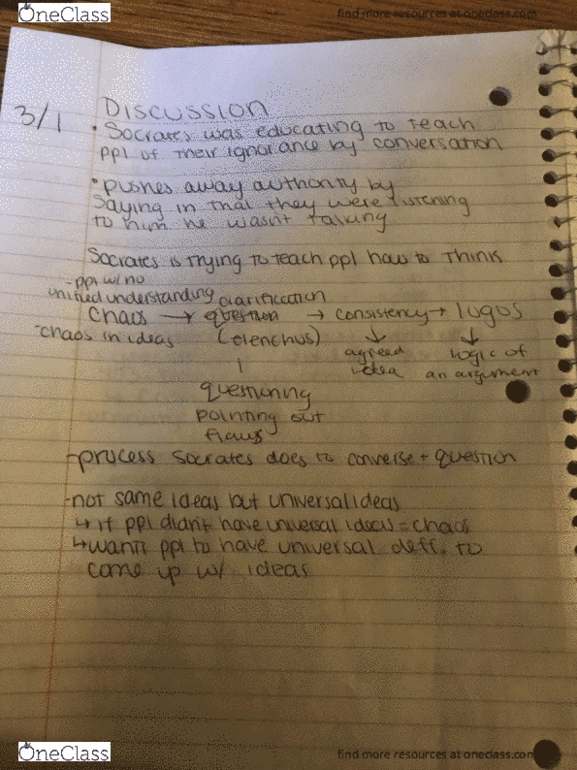 OneClass
find more resources at oneclass.com
3/1 DISCUSSION
• Socrates was educating to teach
ppl of their ignorance by conversation
• pushes away authority by
saying in that they were listening
to him he wasn't talking
Socrates is trying to teach ppl how to think
- ppl w/ no
unified understanding clarification
chaos → question → consistency → logos
- chaos in ideas (elenchus) agreed logic of
idea an argument
questioning
pointing out
flaws
- process Socrates does to converse + question
- not same ideas but universal ideas
↳ if ppl didn't have universal ideas = chaos
↳ wants ppl to have universal deff. to
come up w/ ideas
OneClass
find more resources at oneclass.com